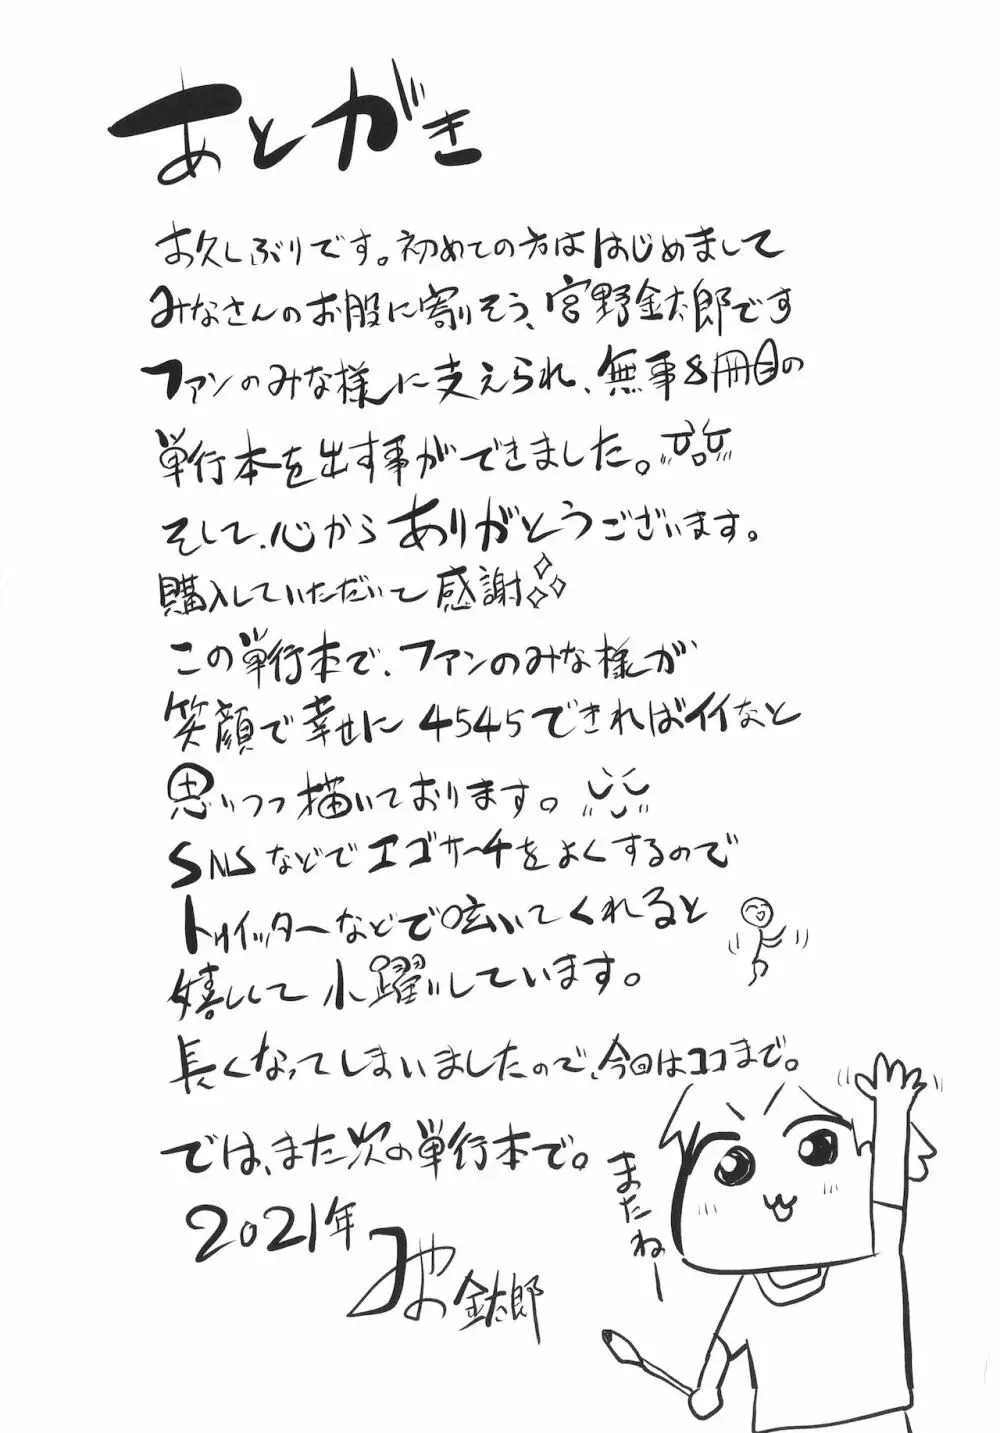 あとがき
お久しぶりです。初めての方ははじめまして
みなさんのお股に寄りそう、宮野金太郎です
ファンのみな様に支えられ、無事8冊目の
単行本を出す事ができました。
そして、心からありがとうございます。
購入していただいて感謝
この単行本で、ファンのみな様が
笑顔で幸せに4545できればイイなと
思いつつ描いております。
SNSなどでエゴサーチをよくするので
トゥイッターなどで呟いてくれると
嬉しくて小躍りしています。
長くなってしまいましたので、今回はココまで。
では、また次の単行本で。
またねー
2021年
みやの金太郎